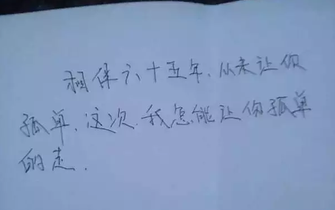 相伴六十五年，从来让你
孤单，这次，我怎能让你孤单
的走.